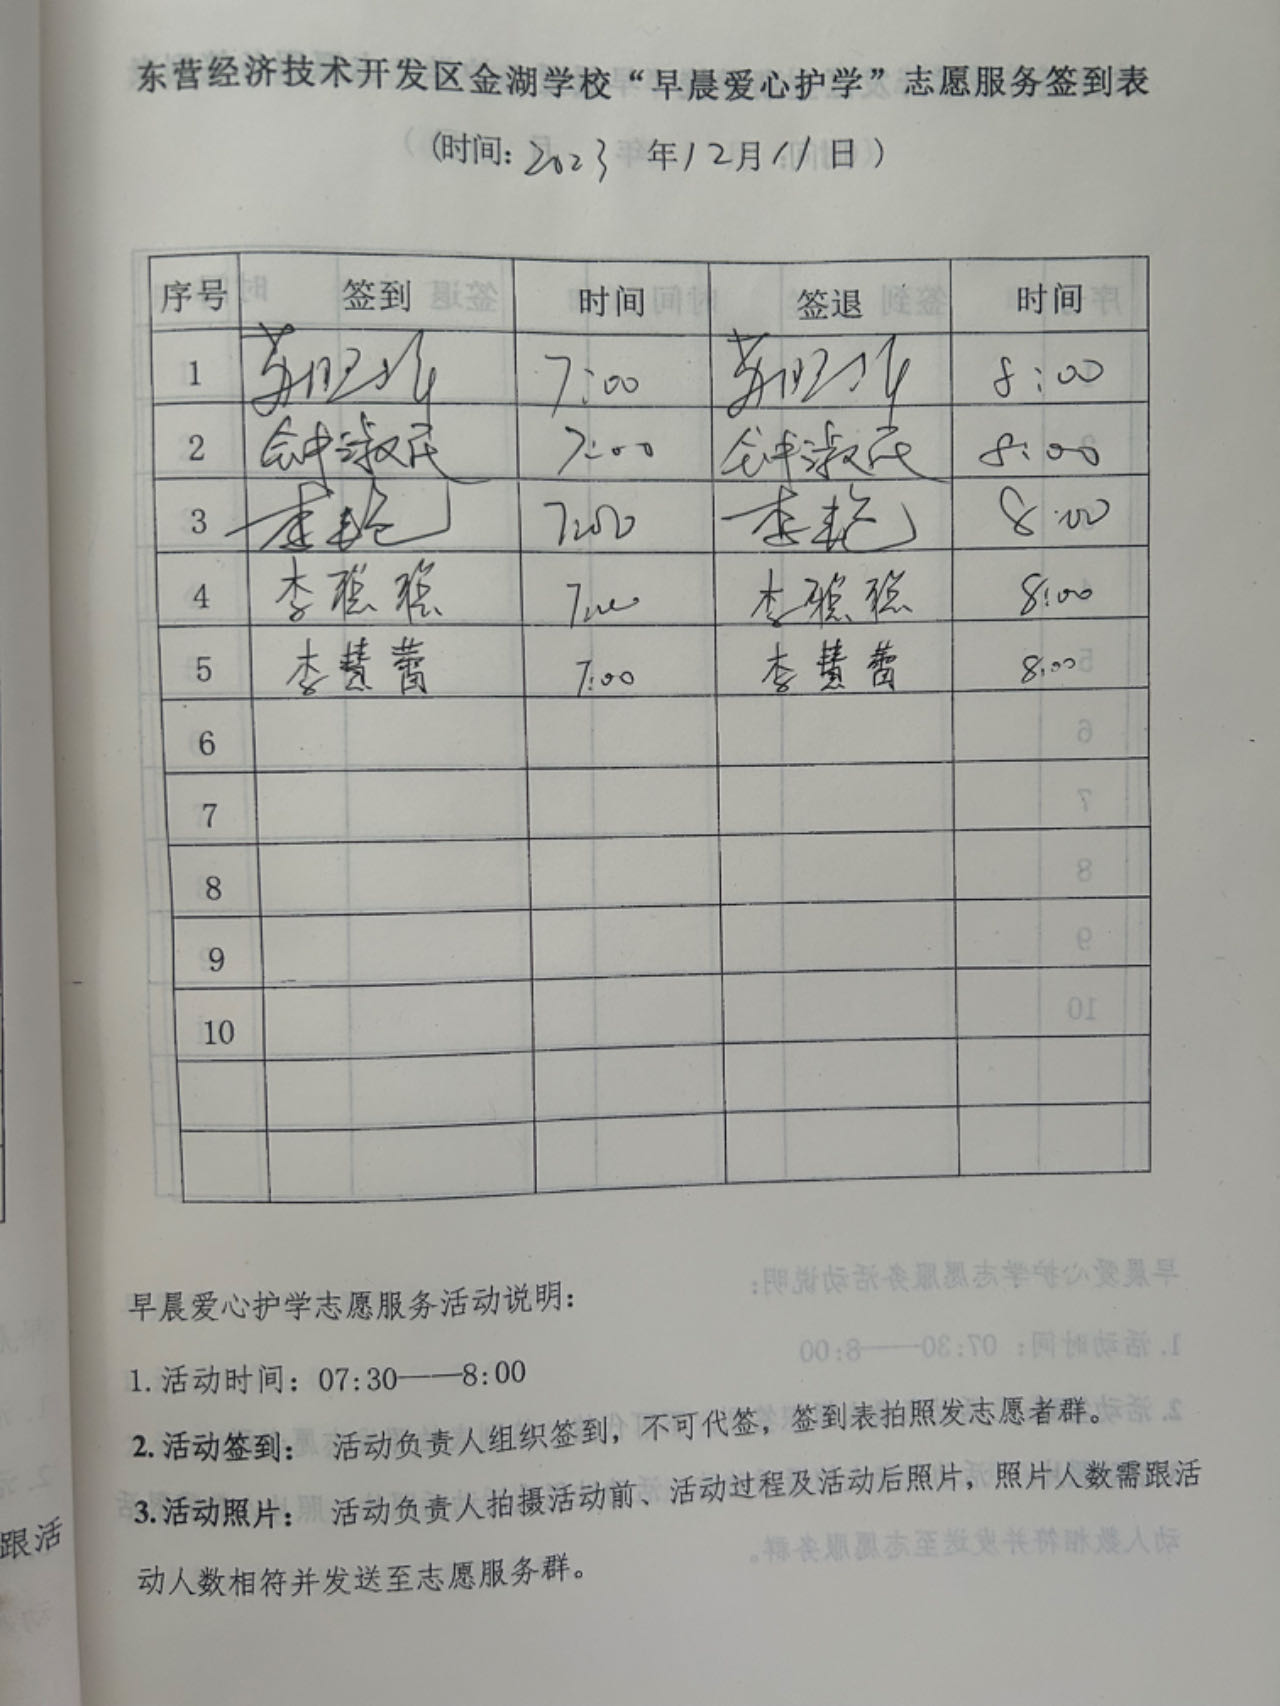 东营经济技术开发区金湖学校“早晨爱心护学”志愿服务签到表
(时间: 2023 年 12 月 11 日 )
序号 签到 时间 签退 时间
1 7:00 8:00
2 钟淑民 7:00 钟淑民 8:00
3 李艳 7:00 李艳 8:00
4 李聪聪 7:00 李聪聪 8:00
5 李慧蕾 7:00 李慧蕾 8:00
6
7
8
9
10
早晨爱心护学志愿服务活动说明:
1. 活动时间: 07:30——8:00
2. 活动签到: 活动负责人组织签到, 不可代签, 签到表拍照发志愿者群。
3. 活动照片: 活动负责人拍摄活动前、活动过程及活动后照片, 照片人数需跟活
动人数相符并发送至志愿服务群。
跟活